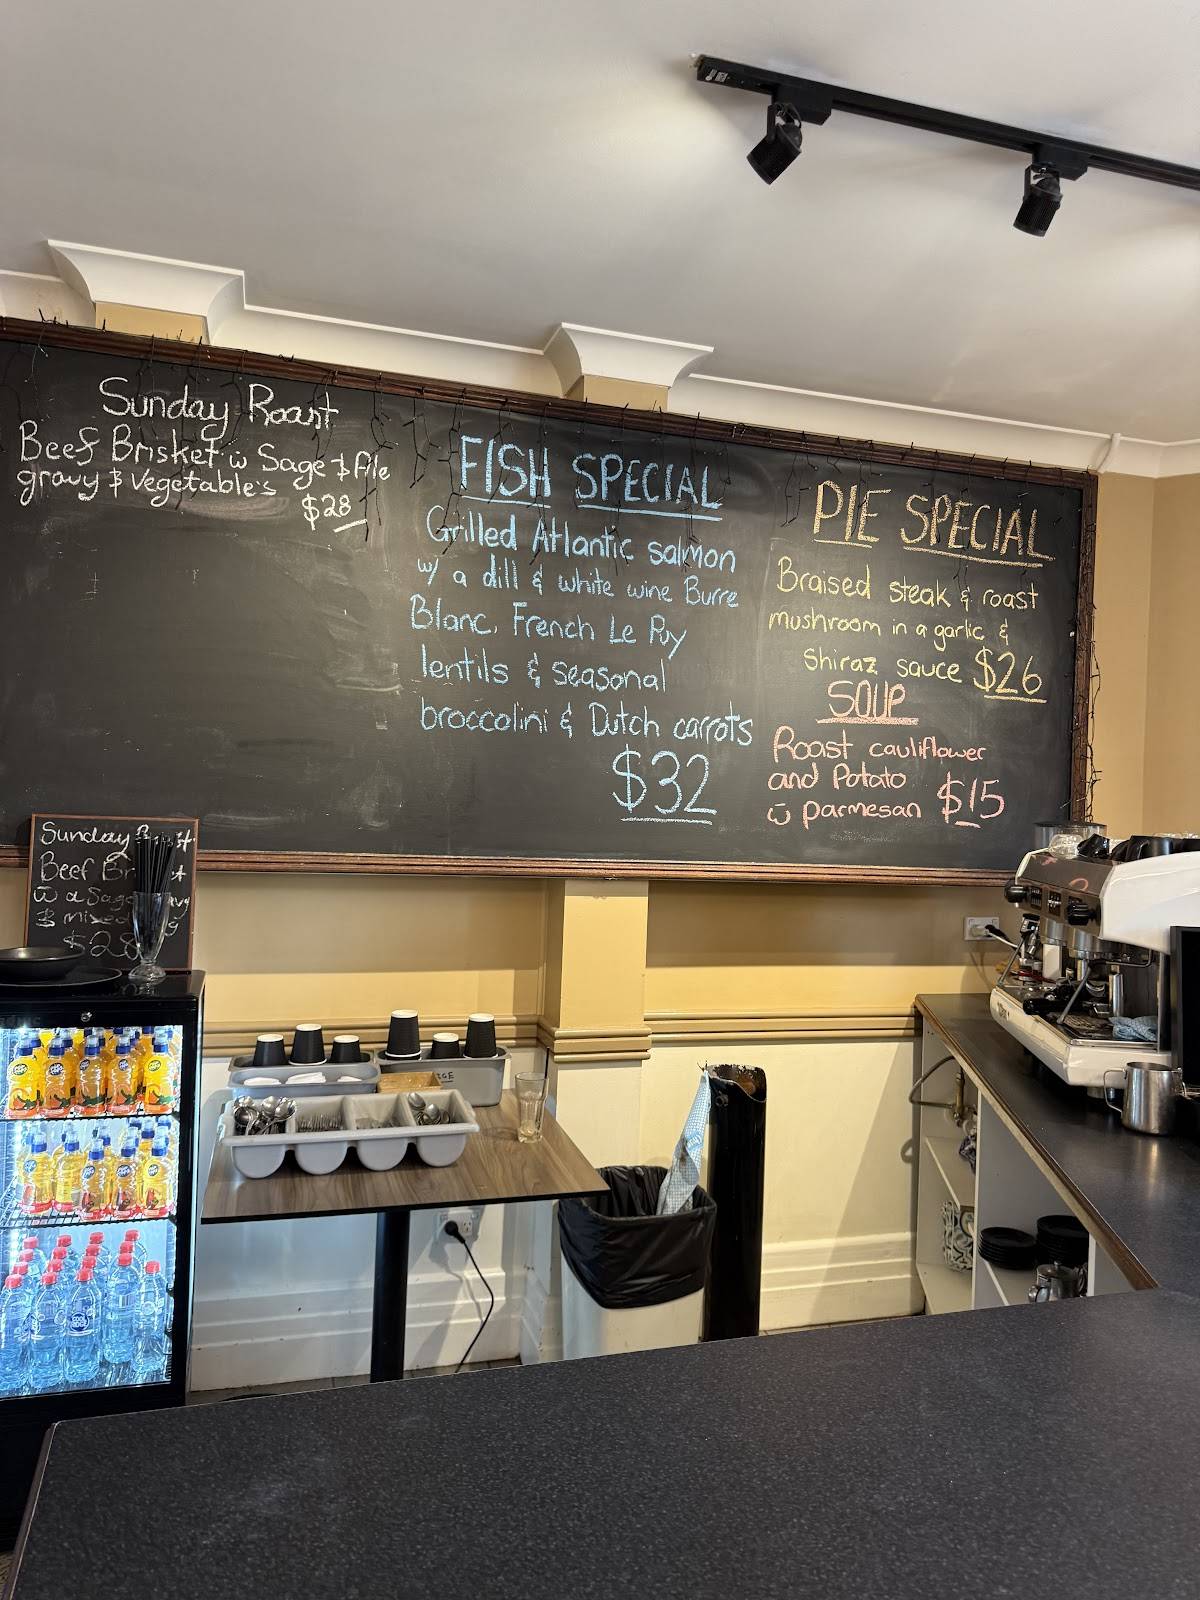 Sunday Roast
Beef Brisket w̄ Sage & Ale
gravy & Vegetables
$28
FISH SPECIAL
Grilled Atlantic salmon
w/ a dill & white wine Burre
Blanc, French Le Puy
lentils & seasonal
broccolini & Dutch carrots
$32
PIE SPECIAL
Braised steak & roast
mushroom in a garlic &
Shiraz sauce $26
SOUP
Roast cauliflower
and Potato
w̄ parmesan $15
Sunday
Beef
w̄ a Sage
& mixed
$28
COOL RIDGE